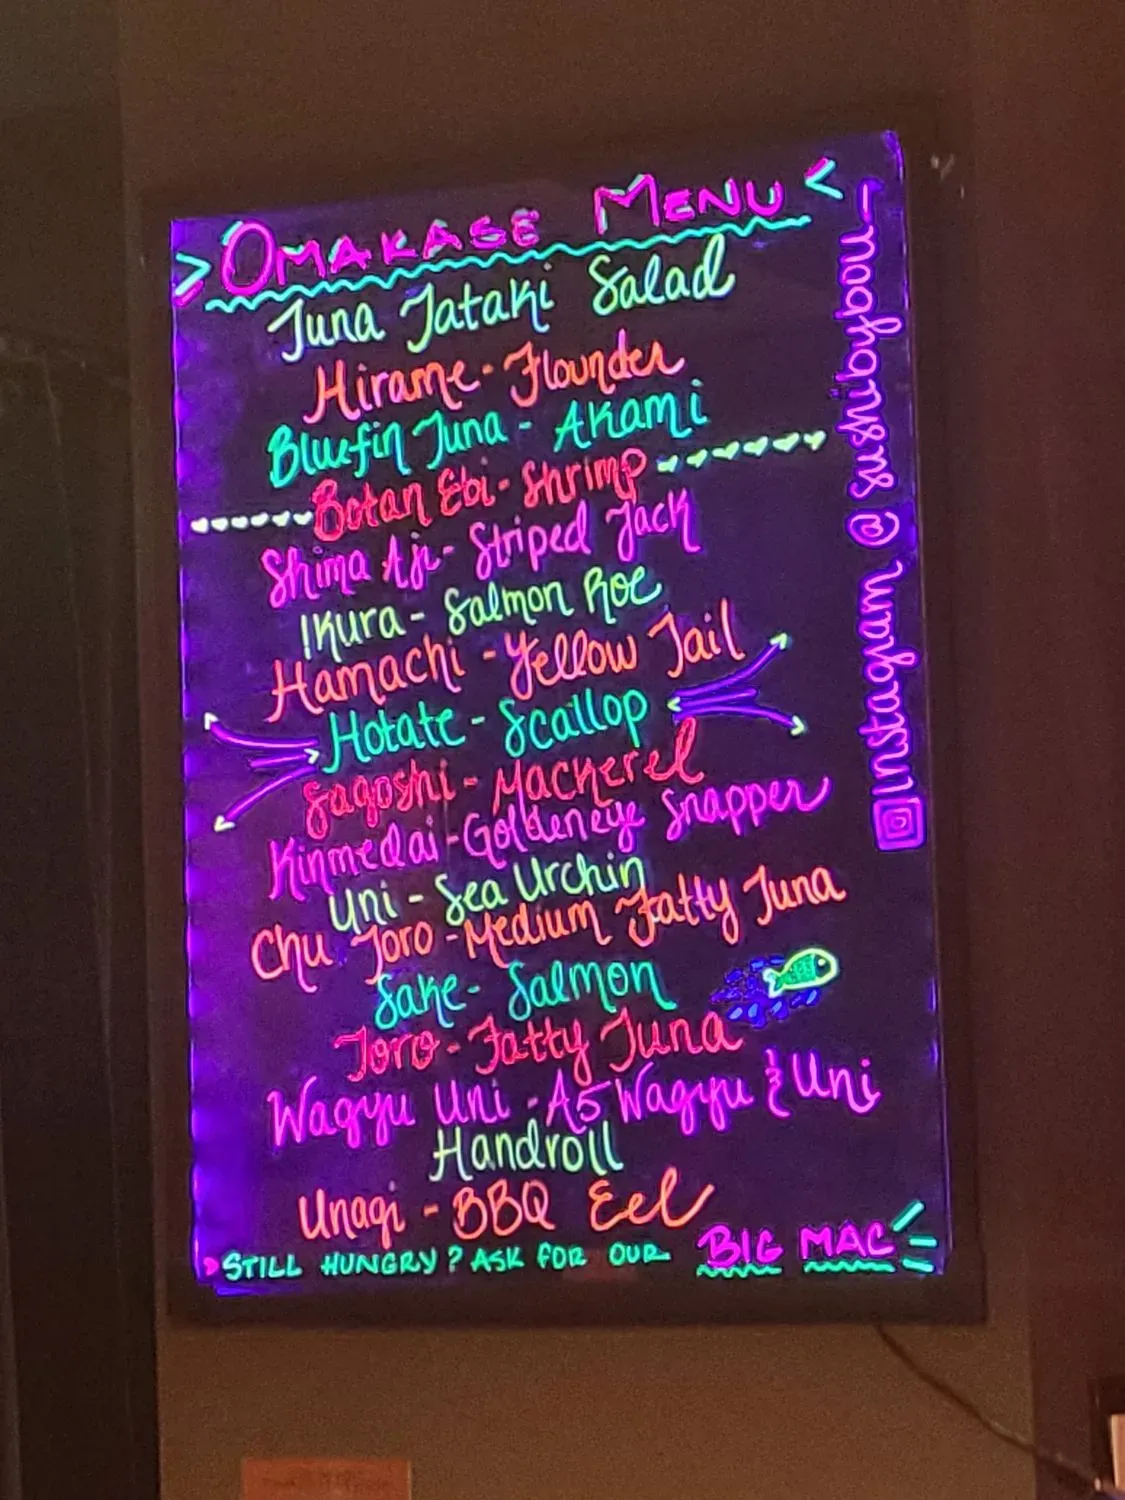 > OMAKASE MENU <
Tuna Tataki Salad
Hirame - Flounder
Bluefin Tuna - Akami
Botan Ebi - Shrimp
Shima Aji - Striped Jack
Ikura - Salmon Roe
Hamachi - Yellow Tail
Hotate - Scallop
Sagoshi - Mackerel
Kinmedai - Goldeneye Snapper
Uni - Sea Urchin
Chu Toro - Medium Fatty Tuna
Sake - Salmon
Toro - Fatty Tuna
Wagyu Uni - A5 Wagyu & Uni
Handroll
Unagi - BBQ Eel
STILL HUNGRY? ASK FOR OUR BIG MAC
Instagram @ sushibybou